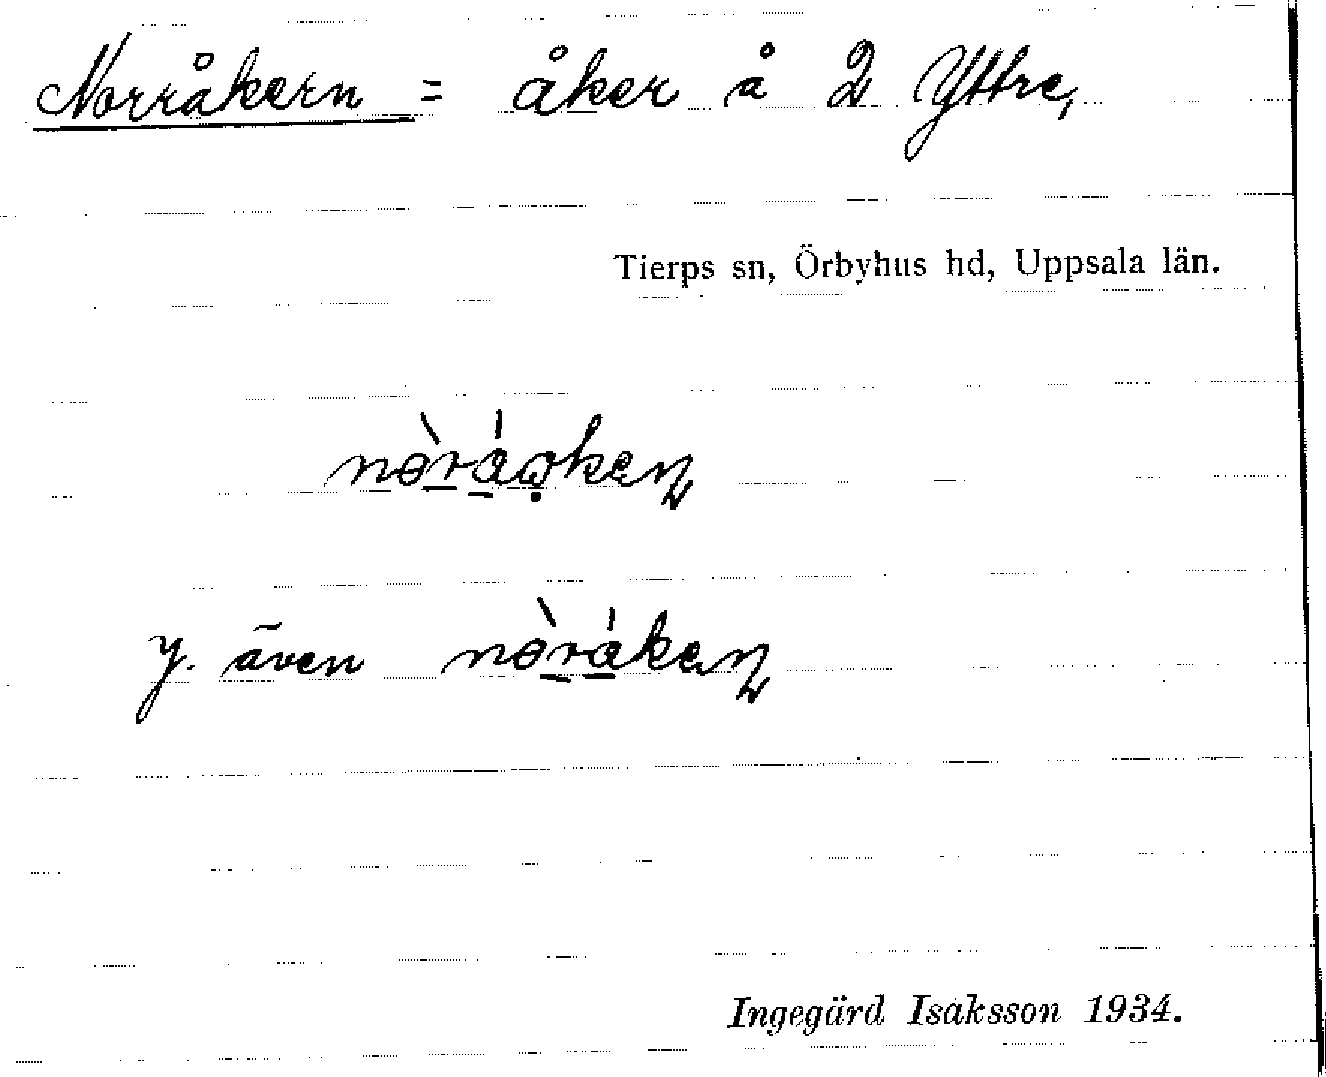 Norråkern = åker å 2 Yttre,
Tierps sn, Örbyhus hd, Uppsala län.
y. även
Ingegärd Isaksson 1934.